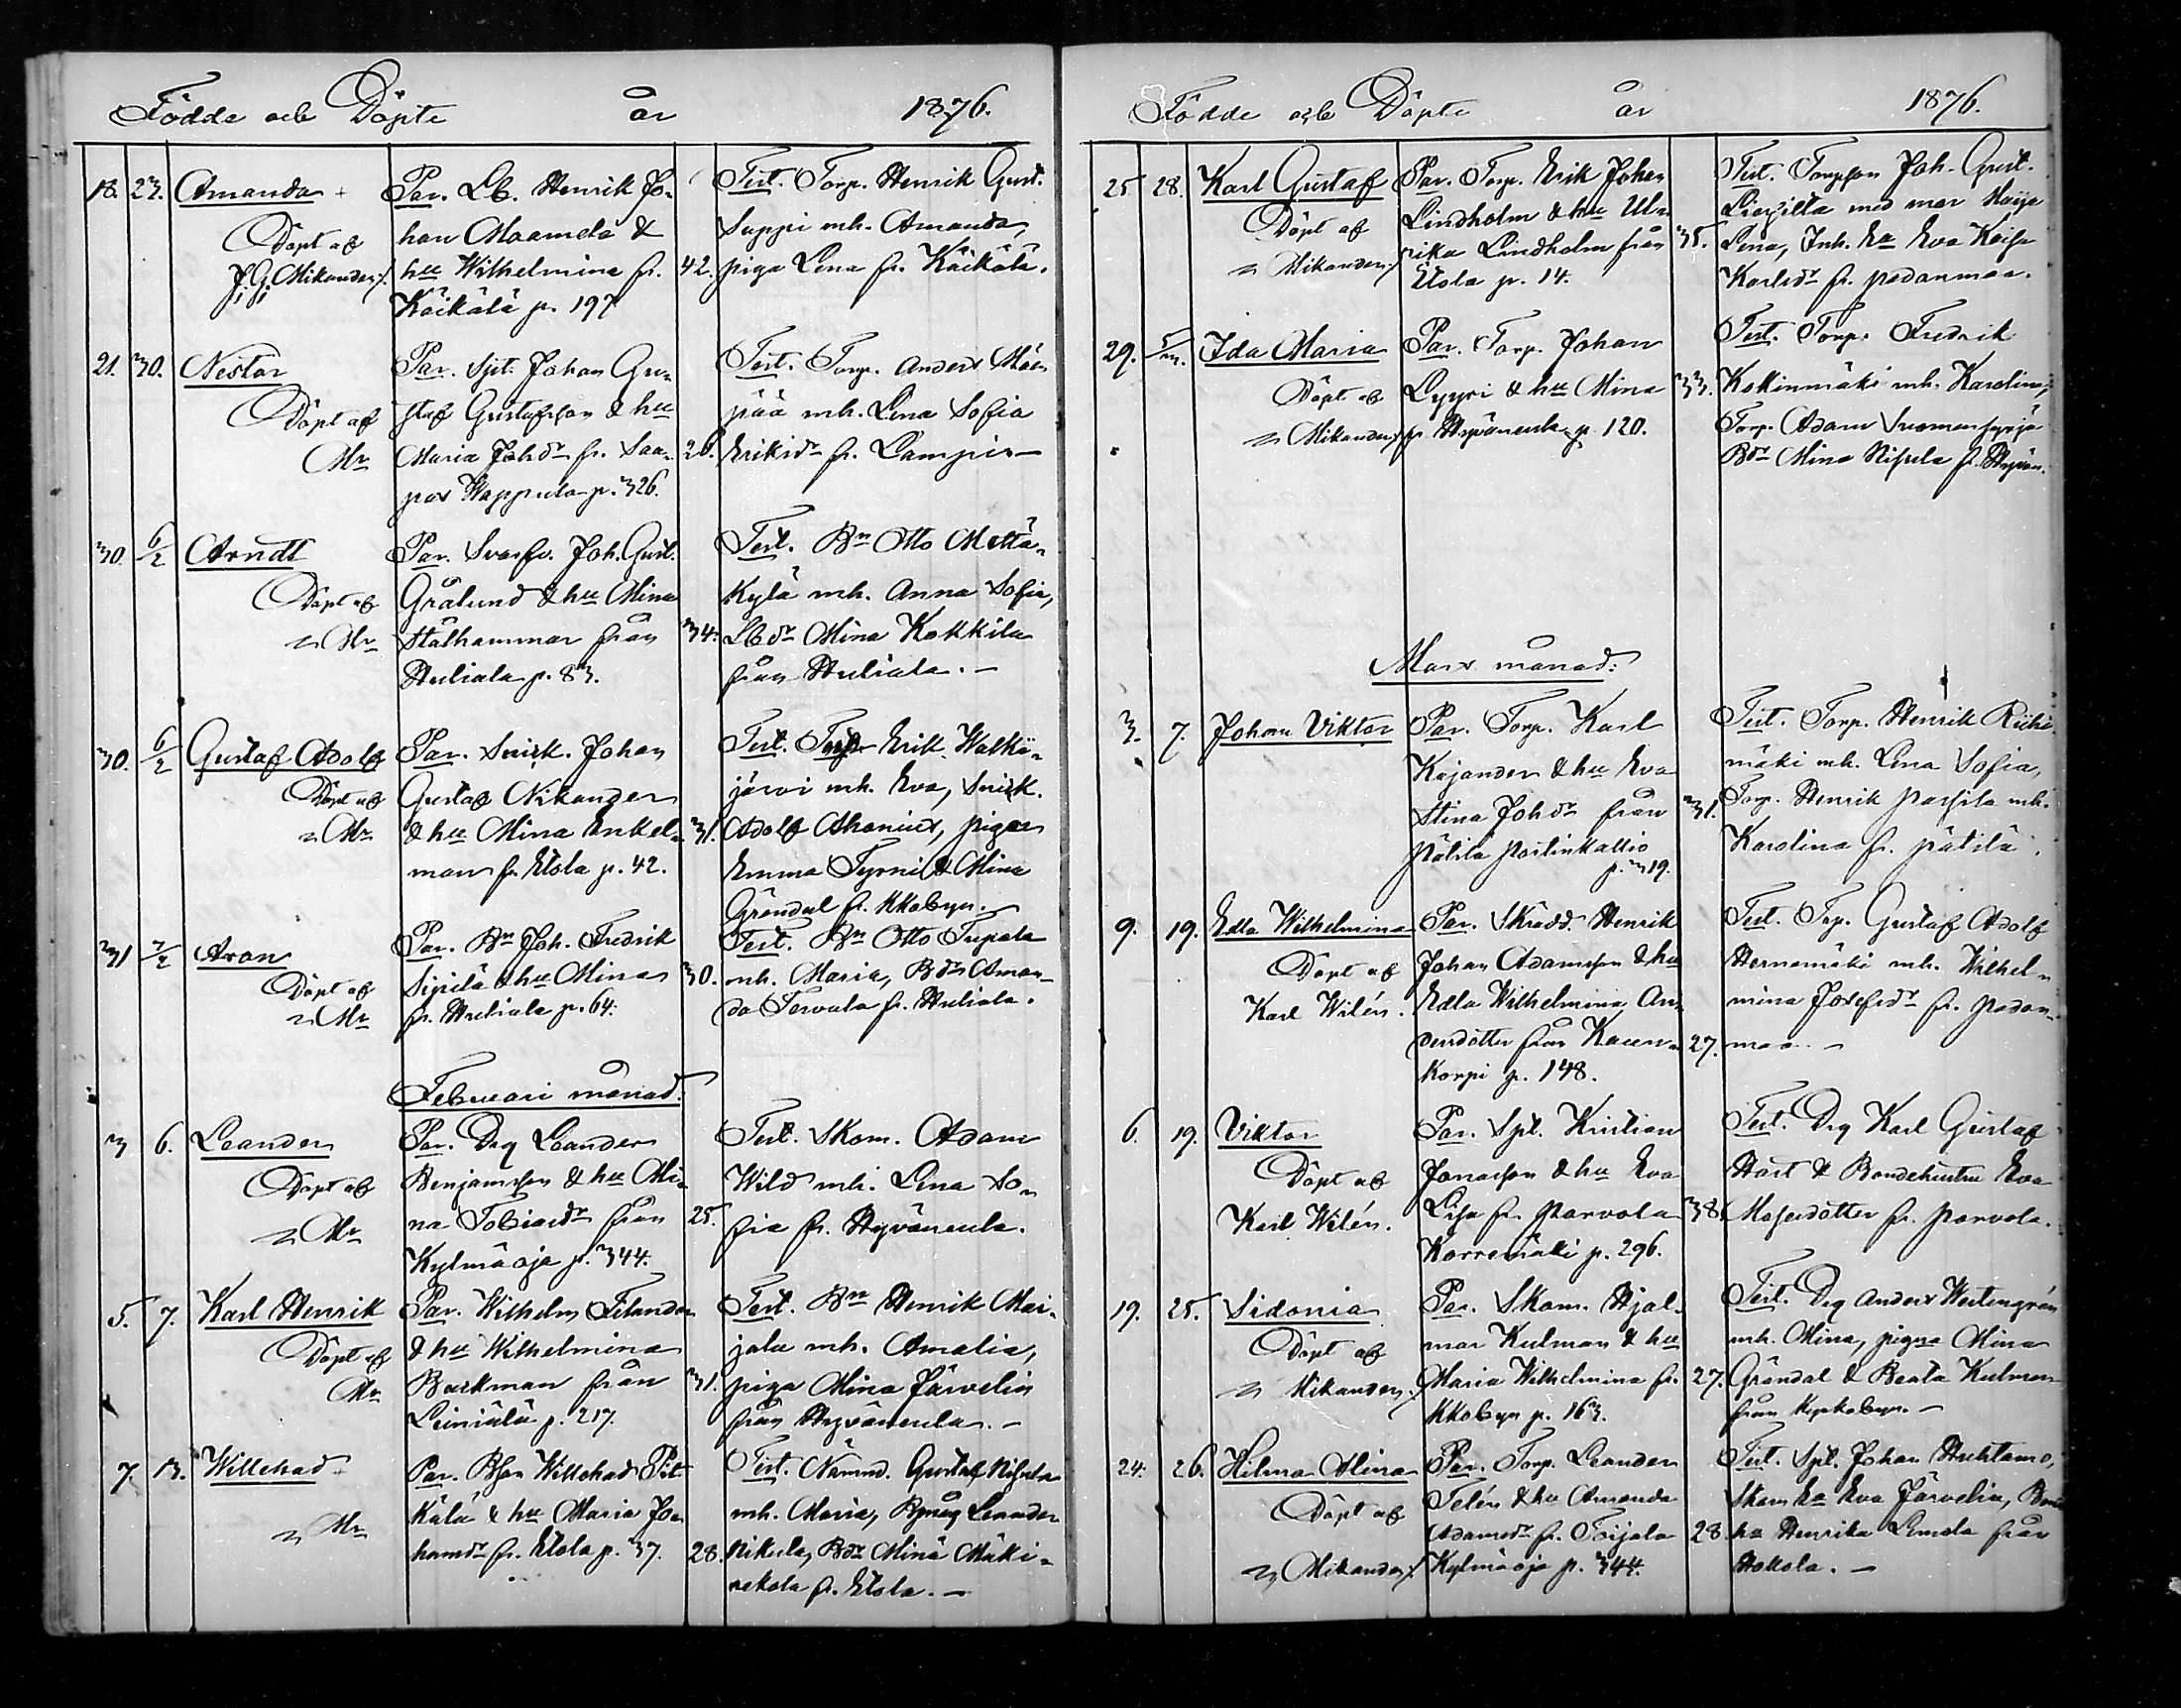 Födde och Döpte år 1876.
18. 23. Amanda
Döpt af
J. G. Mikander
Par. Lb. Henrik Jo-
han Maamela &
hu Wilhelmina fr. 42.
Käikälä p. 197
Test. Torp. Henrik Gust.
Suppi mh. Amanda,
piga Lena fr. Käikälä.
21. 30. Nestor
Döpt af
Mr
Par. Spt. Johan Gu-
staf Gustafsson & hu
Maria Johdr fr. Saa- 26.
pas Wappula p. 326.
Test. Torp. Anders
pää mh. Lena Sofia
Eriksdr fr. Lampis
30. 6/2 Arndt
Döpt af
Mr
Par. Svarfv. Joh. Gust.
Grålund & hu Mina
Stålhammar från 34.
Huliala p. 83.
Test. Bn Otto Mettä-
kylä mh. Anna Sofia,
Lbdr Mina Kokkila
från Huliala.
30. 6/2 Gustaf Adolf
Döpt af
Mr
Par. Snick. Johan
Gustaf Nikander
& hu Mina Enkel- 31.
man fr. Etola p. 42.
Test. Torp. Erik Walkia-
järvi mh. Eva, Snick.
Adolf Ahonius, pigor
Emma Tyrni & Mina
Gröndal fr. Kkobyn.
31 7/2 Aron
Döpt af
Mr
Par. Bn Joh. Fredrik
Sipilä & hu Mina 30.
fr. Huliala p. 64.
Test. Bn Otto Tupala
mh. Maria, Bdr Aman-
da Tervala fr. Huliala.
Februari månad.
3 6. Leander
Döpt af
Mr
Par. Drg Leander
Benjamsson & hu Mi-
na Tobiasdr från 25.
Kylmäoja p. 344.
Test. Skom. Adam
Wild mh. Lena So-
fia fr. Hyväneula.
5. 7. Karl Henrik
Döpt af
Mr
Par. Wilhelm Filander
& hu Wilhelmina
Backman från 31.
Leiniälä p. 217.
Test. Bn Henrik Mar-
jala mh. Amalia,
piga Mina Järvelin
från Hyväneula.
7. 13. Willehad
Mr
Par. Bson Willehad Pit-
kälä & hu Maria Jo-
hansdr fr. Etola p. 37. 28.
Test. Nämnd. Gustaf Nipula
mh. Maria, Bmåg Leander
Nikula, Bdr Mina Mäki-
nekola fr. Etola.
Födde och Döpte år 1876.
25 28. Karl Gustaf
Döpt af
Mikander
Par. Torp. Erik Johan
Lindholm & hu Ul-
rika Lindholm från 35.
Etola p. 14.
Test. Torpson Joh. Gust.
med mor Maija
Lena, Inh. hu Eva Kaisa
Karlsdr fr. Padanmaa.
29. 5/3. Ida Maria
Döpt af
Mikander
Par. Torp. Johan
Lyyri & hu Mina 33.
fr. Hyväneula p. 120.
Test. Torp. Fredrik
Kokinmäki mh. Karolina,
Torp. Adam Suomensyrjä
Bdr Mina Nipula fr. Hyvän.
Mars månad.
3. 7. Johan Viktor
Par. Torp. Karl
Kajander & hu Eva
Stina Johdr från 31.
Pätilä Portinkallio
p. 319.
Test. Torp. Henrik Riihi-
mäki mh. Lena Sofia,
Torp. Henrik Passila mh.
Karolina fr. Pätilä.
9. 19. Edla Wilhelmina
Döpt af
Karl Wilén.
Par. Skrädd. Henrik
Johan Adamsson & hu
Edla Wilhelmina An-
dersdotter från Kauen- 27.
korpi p. 148.
Test. Trp. Gustaf Adolf
Hernemäki mh. Wilhel-
mina Josefsdr fr. Padan-
maa.
6. 19. Viktor
Döpt af
Karl Wilén.
Par. Spt. Kristian
Jonasson & hu Eva
Lisa fr. Parvola 38.
Korremäki p. 296.
Test. Drg Karl Gustaf
Hast & Bondehustru Eva
Masersdotter fr. Parvola.
19. 25. Sidonia
Döpt af
Mikander
Par. Skom. Hjal-
mar Kulman & hu
Maria Wilhelmina fr. 27.
Kkobyn p. 163.
Test. Drg Anders Westergrén
mh. Mina, pigor Mina
Gröndal & Beata Kulman
från Kyrkobyn.
24. 26. Hilma Alina
Döpt af
Mikander
Par. Torp. Leander
Telén & hu Amanda
Adamsdr fr. Toijala 28.
Kylmäoja p. 344.
Test. Spt. Johan Huhtamo,
Skom hu Eva Järvelin, Bond
hu Henrika Lemola från
Hollola.